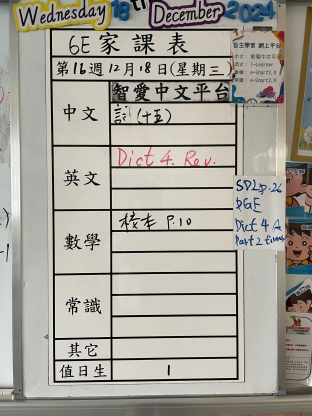 Wednesday 18th December 2024
6E 家課表
第16週12月18日(星期三)
中文
智愛中文平台
詞(十五)
英文
Dict 4. Rev.
數學
校本 P.10
常識
其它
值日生
1
自主學習 網上平台
SDLp.26
PGE
Dict 4 A
Part 2 times